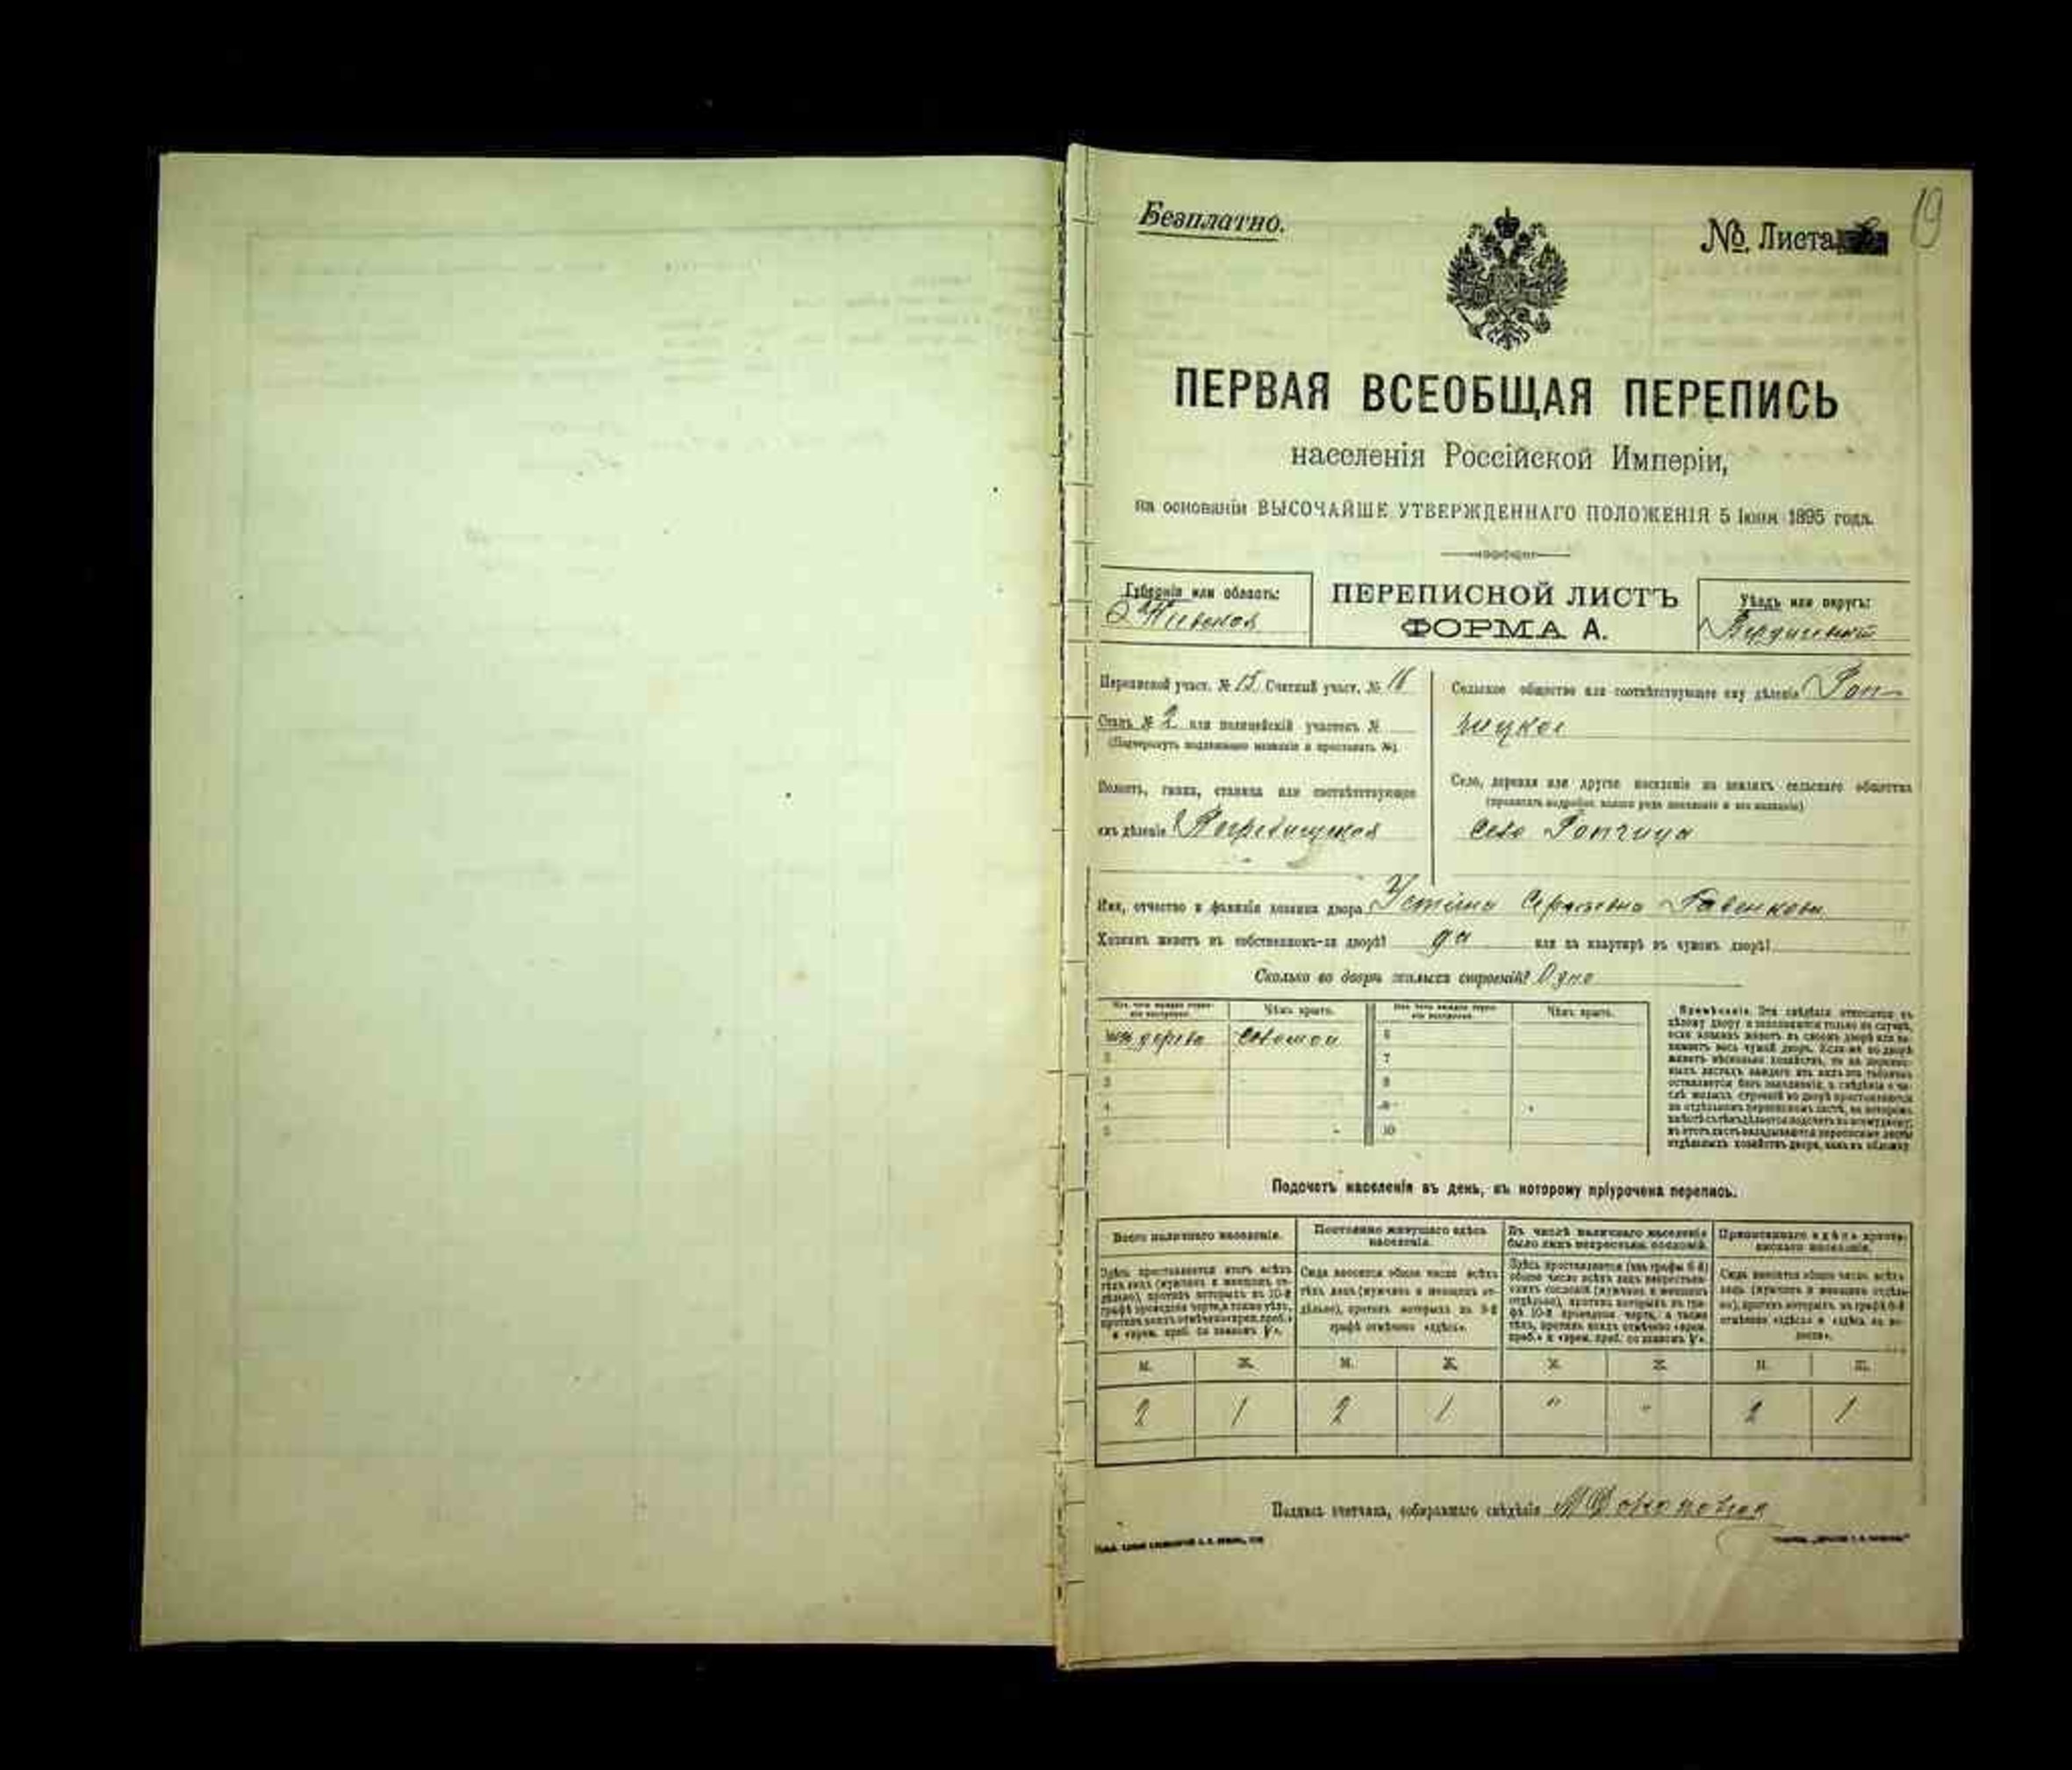 Безплатно.
№ Листа
19
ПЕРВАЯ ВСЕОБЩАЯ ПЕРЕПИСЬ
населенія Россійской Имперіи,
на основаніи ВЫСОЧАЙШЕ УТВЕРЖДЕННАГО ПОЛОЖЕНІЯ 5 Іюня 1895 года.
Губернія или область:
Кіевская
ПЕРЕПИСНОЙ ЛИСТЪ
ФОРМА А.
Уѣздъ или округъ:
Бердичевскій
Переписной участ. № 15 Счетный участ. № 16
Станъ № 2 или полицейскій участокъ №
(Подчеркнуть надлежащее названіе и проставить №).
Волость, гмина, станица или соотвѣтствующее
имъ дѣленіе Погребищская
Сельское общество или соотвѣтствующее ему дѣленіе Роп-
чицкое
Село, деревня или другое поселеніе на земляхъ сельскаго общества
(прописать подробно какого рода поселеніе и его названіе)
село Ропчица
Имя, отчество и фамилія хозяина двора Устина Сергѣевна
Хозяинъ живетъ въ собственномъ-ли дворѣ? да или въ квартирѣ въ чужомъ дворѣ?
Сколько во дворѣ жилыхъ строеній? Одно
Изъ чего каждое строе-
ніе построено.
Чѣмъ крыто.
Изъ чего каждое строе-
ніе построено.
Чѣмъ крыто.
изъ дерева соломой 6
2 7
3 8
4 9
5 10
Примѣчаніе. Эти свѣдѣнія относятся къ
цѣлому двору и заполняются только въ случаѣ,
если хозяинъ живетъ въ своемъ дворѣ или за-
нимаетъ весь чужой дворъ. Если же во дворѣ
живетъ нѣсколько хозяйствъ, то на перепис-
ныхъ листахъ каждаго изъ нихъ эта табличка
оставляется безъ заполненія, а свѣдѣнія о чи-
слѣ жилыхъ строеній во дворѣ проставляются
на отдѣльномъ переписномъ листѣ, на которомъ
вмѣстѣ съ тѣмъ дѣлается подсчетъ по всему двору;
въ этотъ листъ вкладываются переписные листы
отдѣльныхъ хозяйствъ двора, какъ въ обложку.
Подсчетъ населенія въ день, къ которому пріурочена перепись.
Всего наличнаго населенія.
Постоянно живущаго здѣсь
населенія.
Въ числѣ наличнаго населенія
было лицъ некрестьян. сословій.
Приписаннаго здѣсь кресть-
янскаго населенія.
Здѣсь проставляется итогъ всѣхъ
тѣхъ лицъ (мужчинъ и женщинъ от-
дѣльно), противъ которыхъ въ 10-й
графѣ проведена черта, а также тѣхъ,
противъ коихъ отмѣчено «врем. преб.»
и «врем. преб. со знакомъ V».
Сюда вносится общее число всѣхъ
тѣхъ лицъ (мужчинъ и женщинъ от-
дѣльно), противъ которыхъ въ 9-й
графѣ отмѣчено «здѣсь».
Здѣсь проставляется (изъ графы 6-й)
общее число всѣхъ лицъ некрестьян-
скихъ сословій (мужчинъ и женщинъ
отдѣльно), противъ которыхъ въ гра-
фѣ 10-й проведена черта, а также
тѣхъ, противъ коихъ отмѣчено «врем.
преб.» и «врем. преб. со знакомъ V».
Сюда вносится общее число всѣхъ
лицъ (мужчинъ и женщинъ отдѣль-
но), противъ которыхъ въ графѣ 8-й
отмѣчено «здѣсь» и «здѣсь въ во-
лости».
М. Ж. М. Ж. М. Ж. М. Ж.
2 1 2 1 " " 2 1
Подпись счетчика, собиравшаго свѣдѣнія